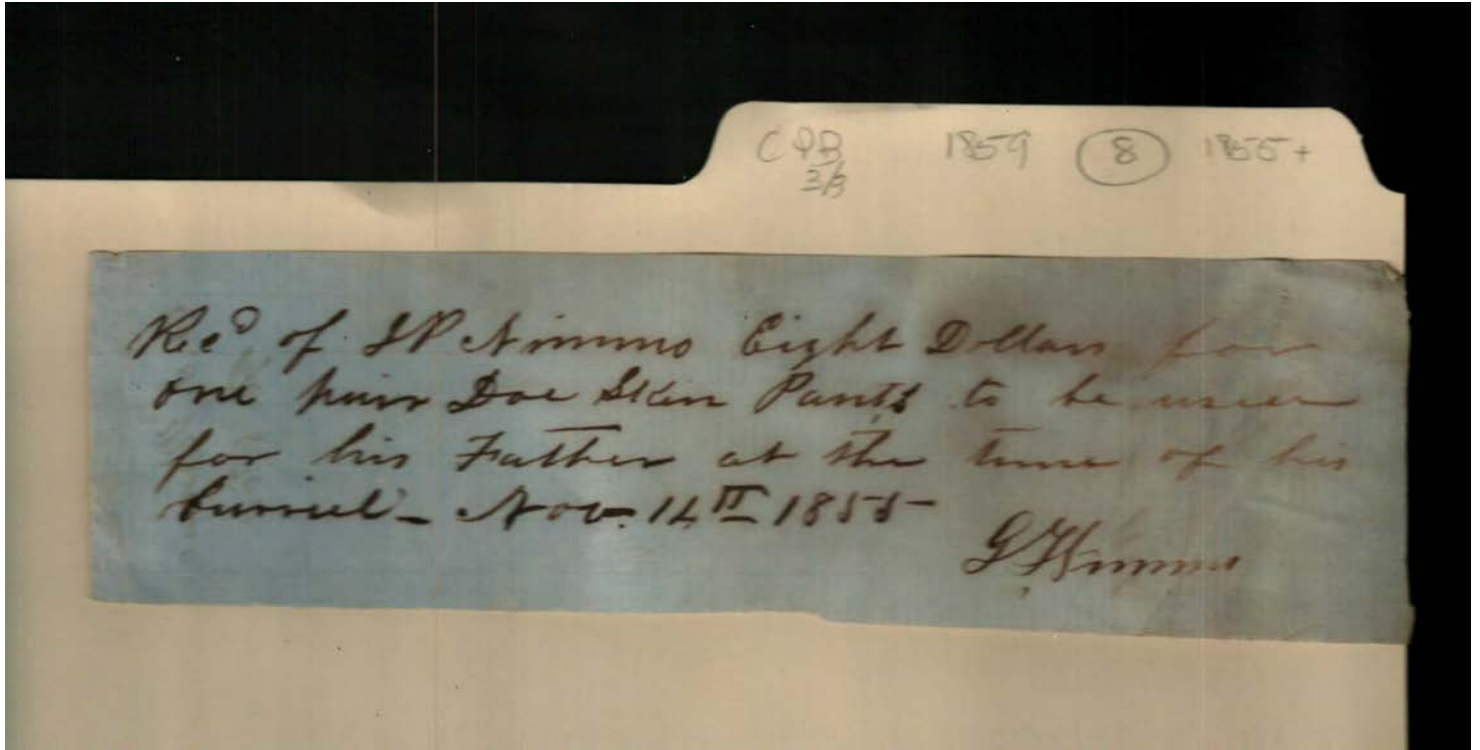 CPB 1859 8 1855+
3/3
Rec'd of J P Nimmo Eight Dollars for
one pair Doe Skin Pants to be used
for his Father at the time of his
burriel - Nov. 14th 1855